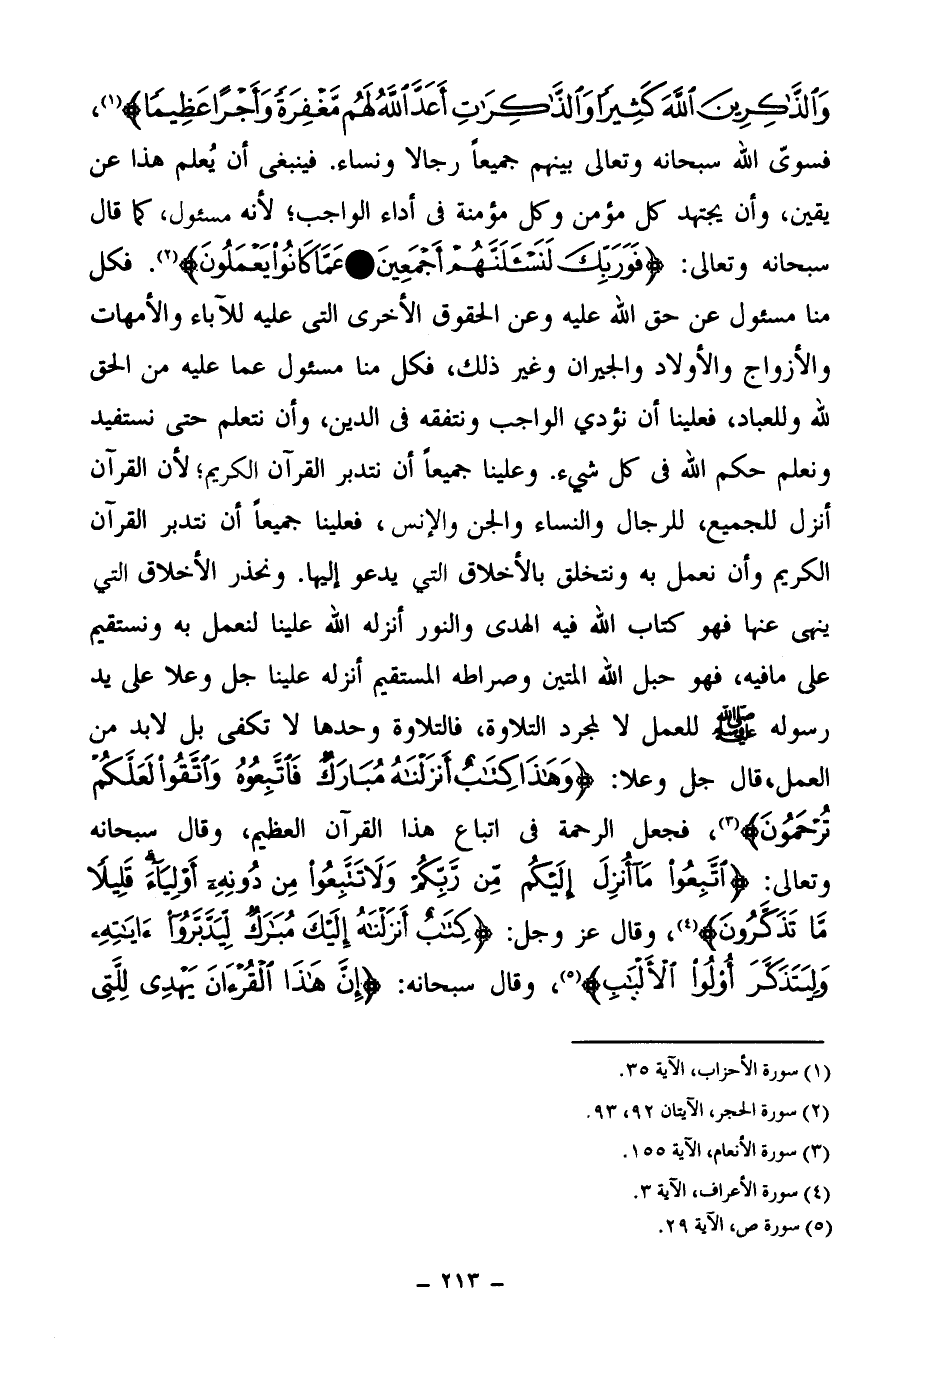 وَالذَّاكِرِينَ ٱللَّهَ كَثِيرًا وَالذَّاكِرَاتِ أَعَدَّ اللَّهُ لَهُم مَّغْفِرَةً وَأَجْرًا عَظِيمًا﴾(١)،
فسوىّ الله سبحانه وتعالى بينهم جميعاً رجالا ونساء. فينبغى أن يُعلم هذا عن
يقين، وأن يجتهد كل مؤمن وكل مؤمنة فى أداء الواجب؛ لأنه مسئول، كما قال
سبحانه وتعالى: ﴿فَوَرَبِّكَ لَنَسْـَٔلَنَّهُمْ أَجْمَعِينَ ● عَمَّا كَانُوا۟ يَعْمَلُونَ﴾(٢). فكل
منا مسئول عن حق الله عليه وعن الحقوق الأخرى التى عليه للآباء والأمهات
والأزواج والأولاد والجيران وغير ذلك، فكل منا مسئول عما عليه من الحق
لله وللعباد، فعلينا أن نؤدي الواجب ونتفقه فى الدين، وأن نتعلم حتى نستفيد
ونعلم حكم الله فى كل شيء. وعلينا جميعاً أن نتدبر القرآن الكريم؛ لأن القرآن
أنزل للجميع، للرجال والنساء والجن والإنس، فعلينا جميعاً أن نتدبر القرآن
الكريم وأن نعمل به ونتخلق بالأخلاق التي يدعو إليها. ونحذر الأخلاق التي
ينهى عنها فهو كتاب الله فيه الهدى والنور أنزله الله علينا لنعمل به ونستقيم
على مافيه، فهو حبل الله المتين وصراطه المستقيم أنزله علينا جل وعلا على يد
رسوله ﷺ للعمل لا لمجرد التلاوة، فالتلاوة وحدها لا تكفى بل لابد من
العمل، قال جل وعلا: ﴿وَهَٰذَا كِتَٰبٌ أَنزَلْنَٰهُ مُبَارَكٌ فَٱتَّبِعُوهُ وَٱتَّقُوا۟ لَعَلَّكُمْ
تُرْحَمُونَ﴾(٣)، فجعل الرحمة فى اتباع هذا القرآن العظيم، وقال سبحانه
وتعالى: ﴿ٱتَّبِعُوا۟ مَآ أُنزِلَ إِلَيْكُم مِّن رَّبِّكُمْ وَلَا تَتَّبِعُوا۟ مِن دُونِهِۦٓ أَوْلِيَآءَ ۗ قَلِيلًا
مَّا تَذَكَّرُونَ﴾(٤)، وقال عز وجل: ﴿كِتَٰبٌ أَنزَلْنَٰهُ إِلَيْكَ مُبَٰرَكٌ لِّيَدَّبَّرُوٓا۟ ءَايَٰتِهِۦ
وَلِيَتَذَكَّرَ أُو۟لُوا۟ ٱلْأَلْبَٰبِ﴾(٥)، وقال سبحانه: ﴿إِنَّ هَٰذَا ٱلْقُرْءَانَ يَهْدِى لِلَّتِى
(١) سورة الأحزاب، الآية ٣٥.
(٢) سورة الحجر، الآيتان ٩٢، ٩٣.
(٣) سورة الأنعام، الآية ١٥٥.
(٤) سورة الأعراف، الآية ٣.
(٥) سورة ص، الآية ٢٩.
– ٢١٣ –